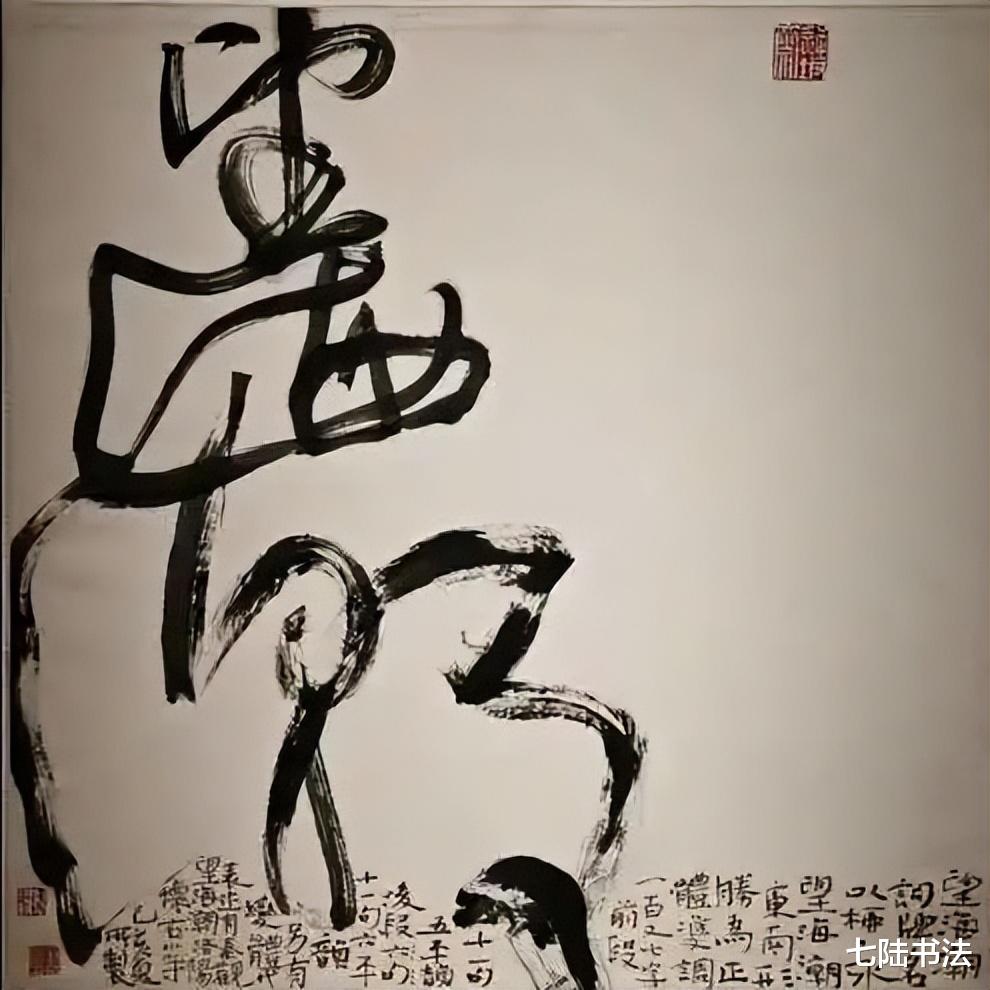 望海潮
望海潮
詞牌名
以柳永
望海潮
東南形
勝為正
體雙調
一百又七字
前段
十一句
五平韻
後段
十一句六平
韻
另有
變體
秦觀
望海潮洛陽
懷古等
己亥夏
製
七陆书法